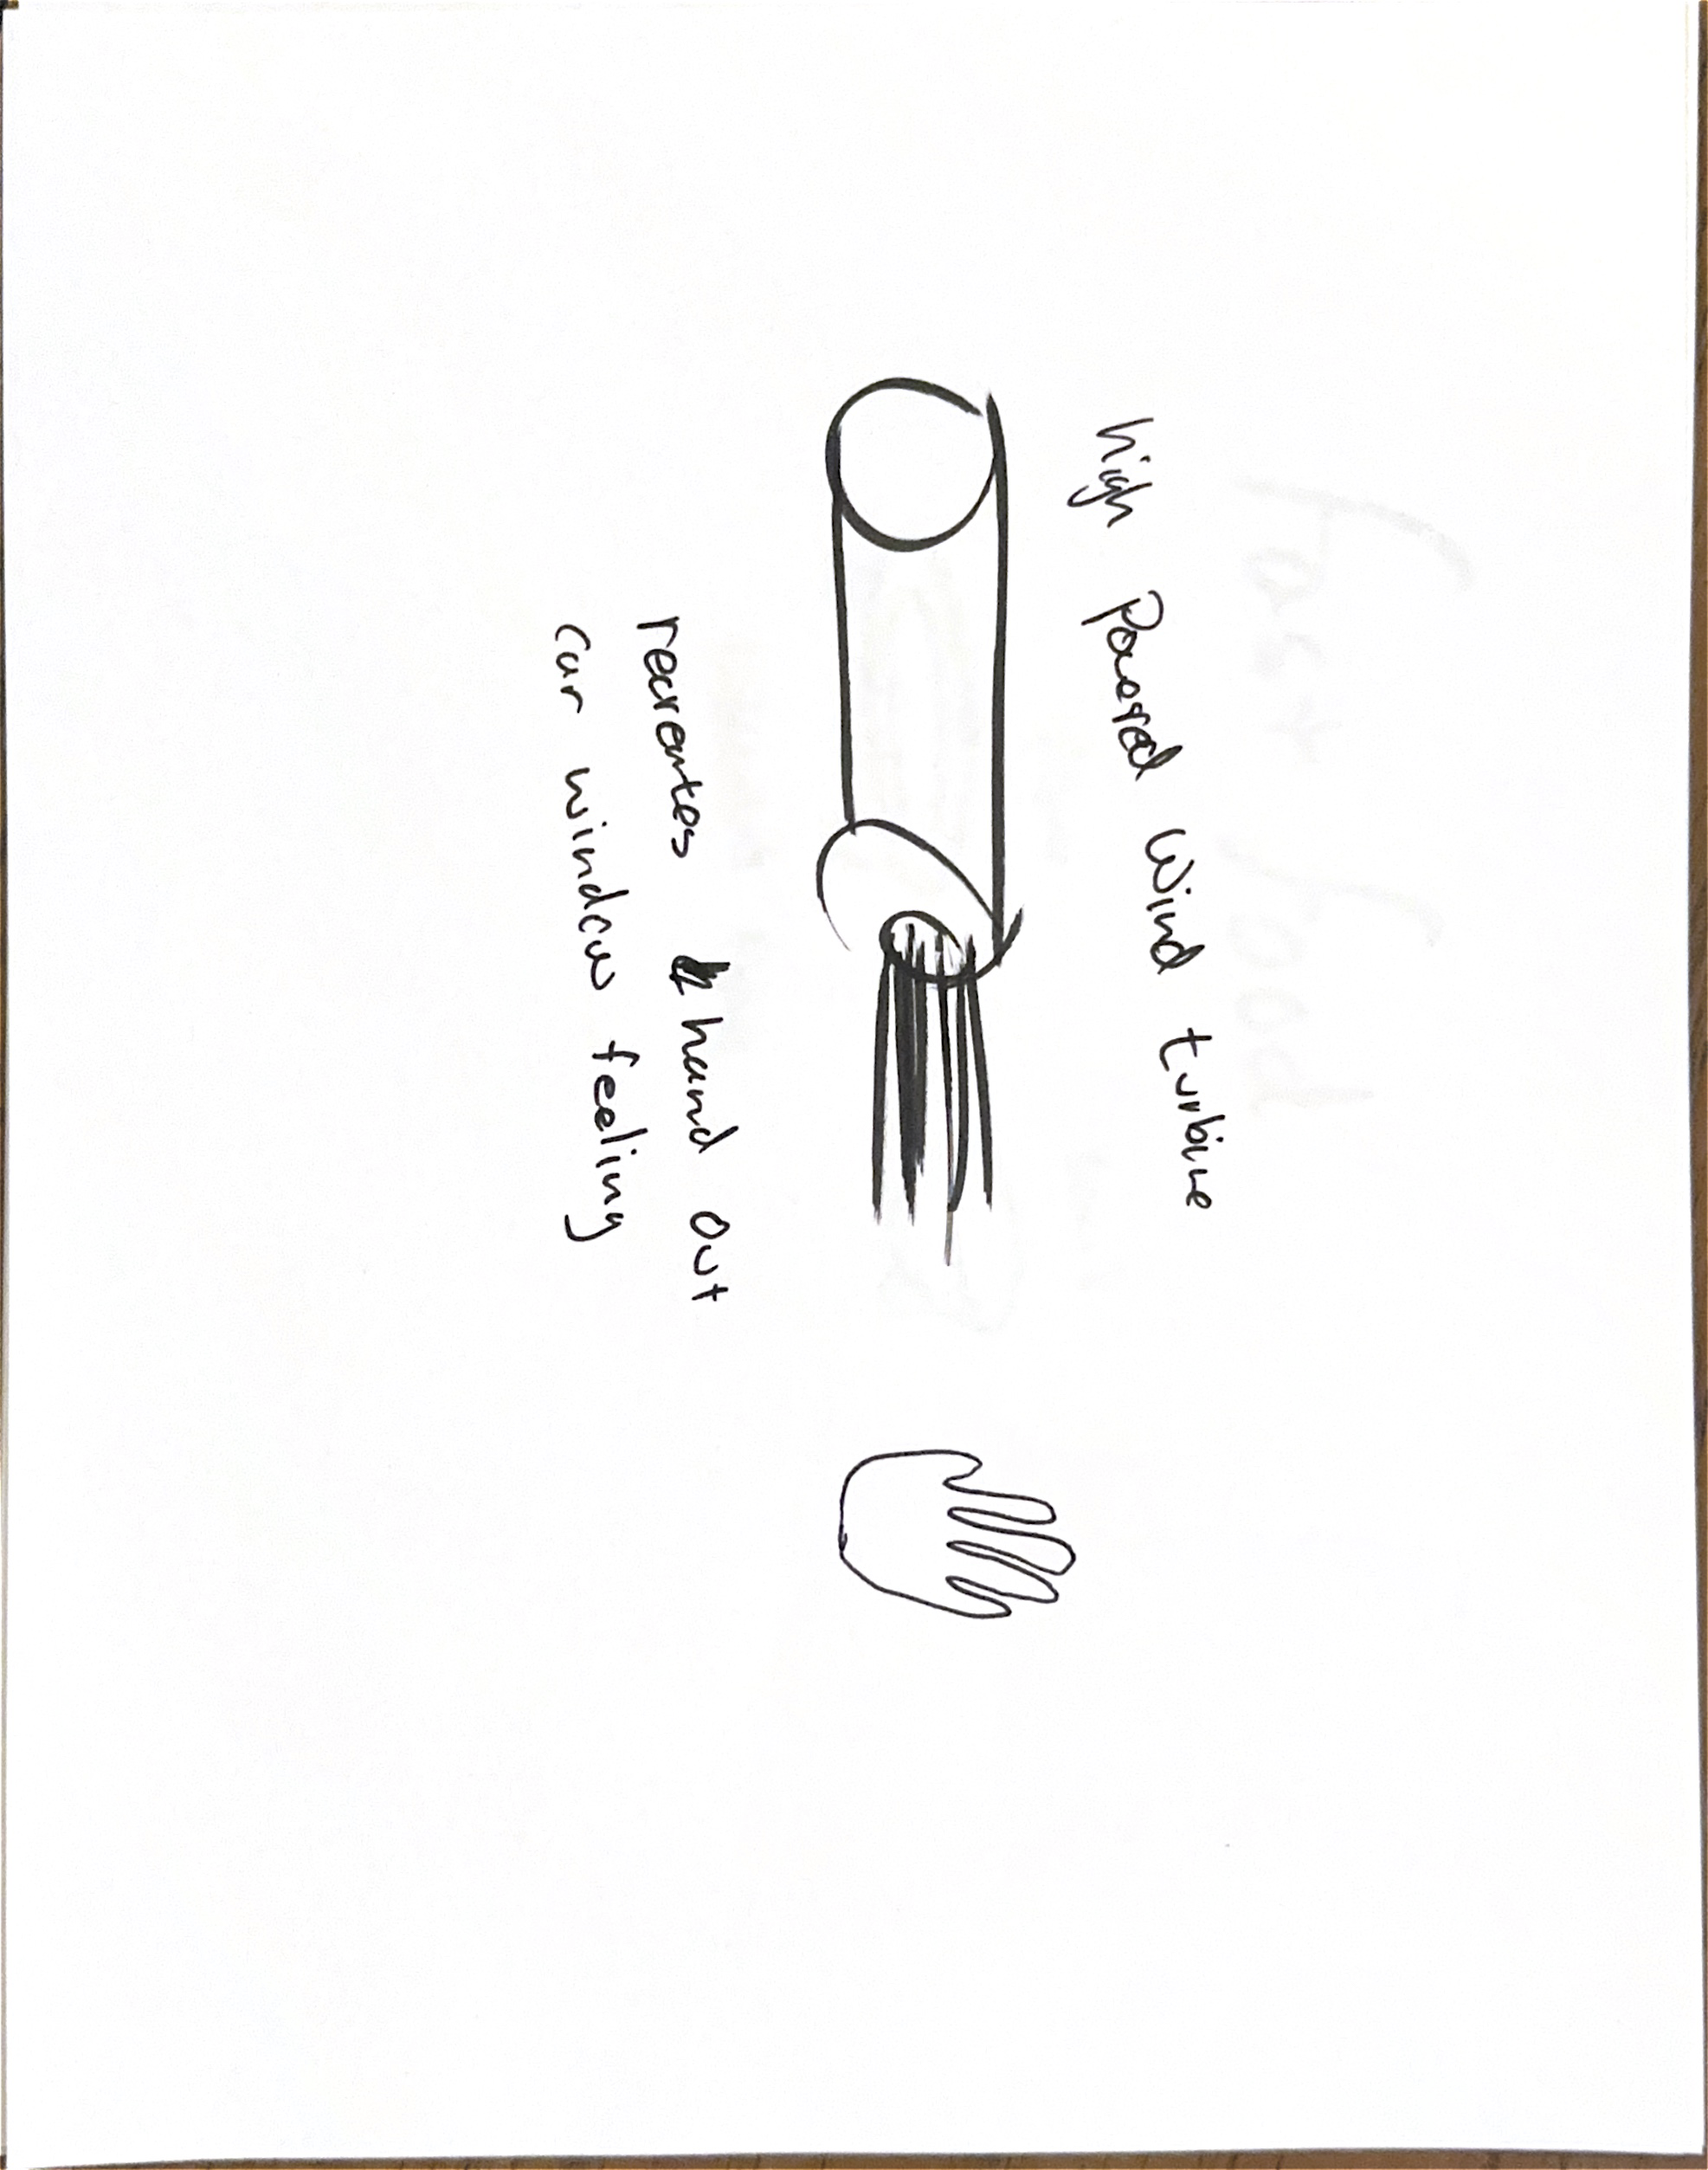 high Powered Wind turbine
recreates hand out
car window feeling